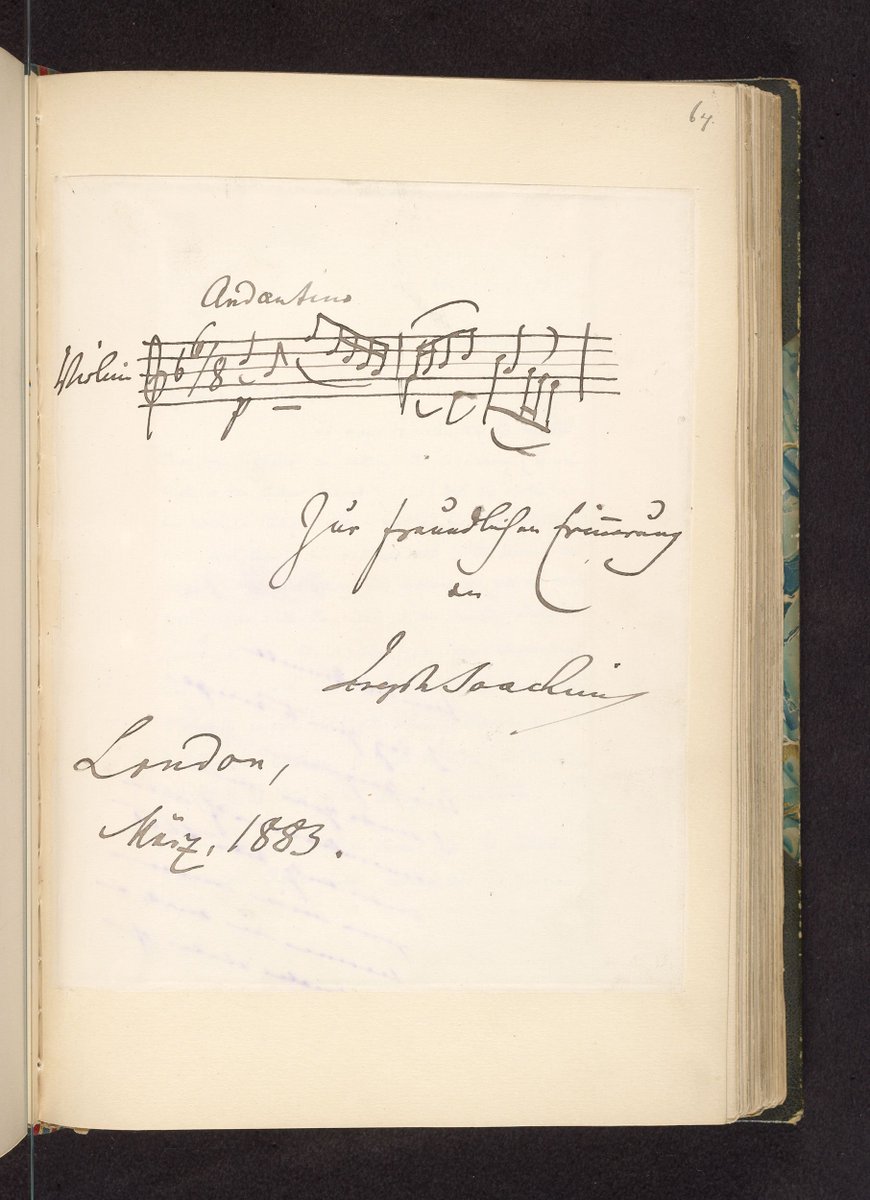 64.
Andantino
Violin
6/8
p
Zur freundlichen Erinnerung
an
Joseph Joachim
London,
März, 1883.